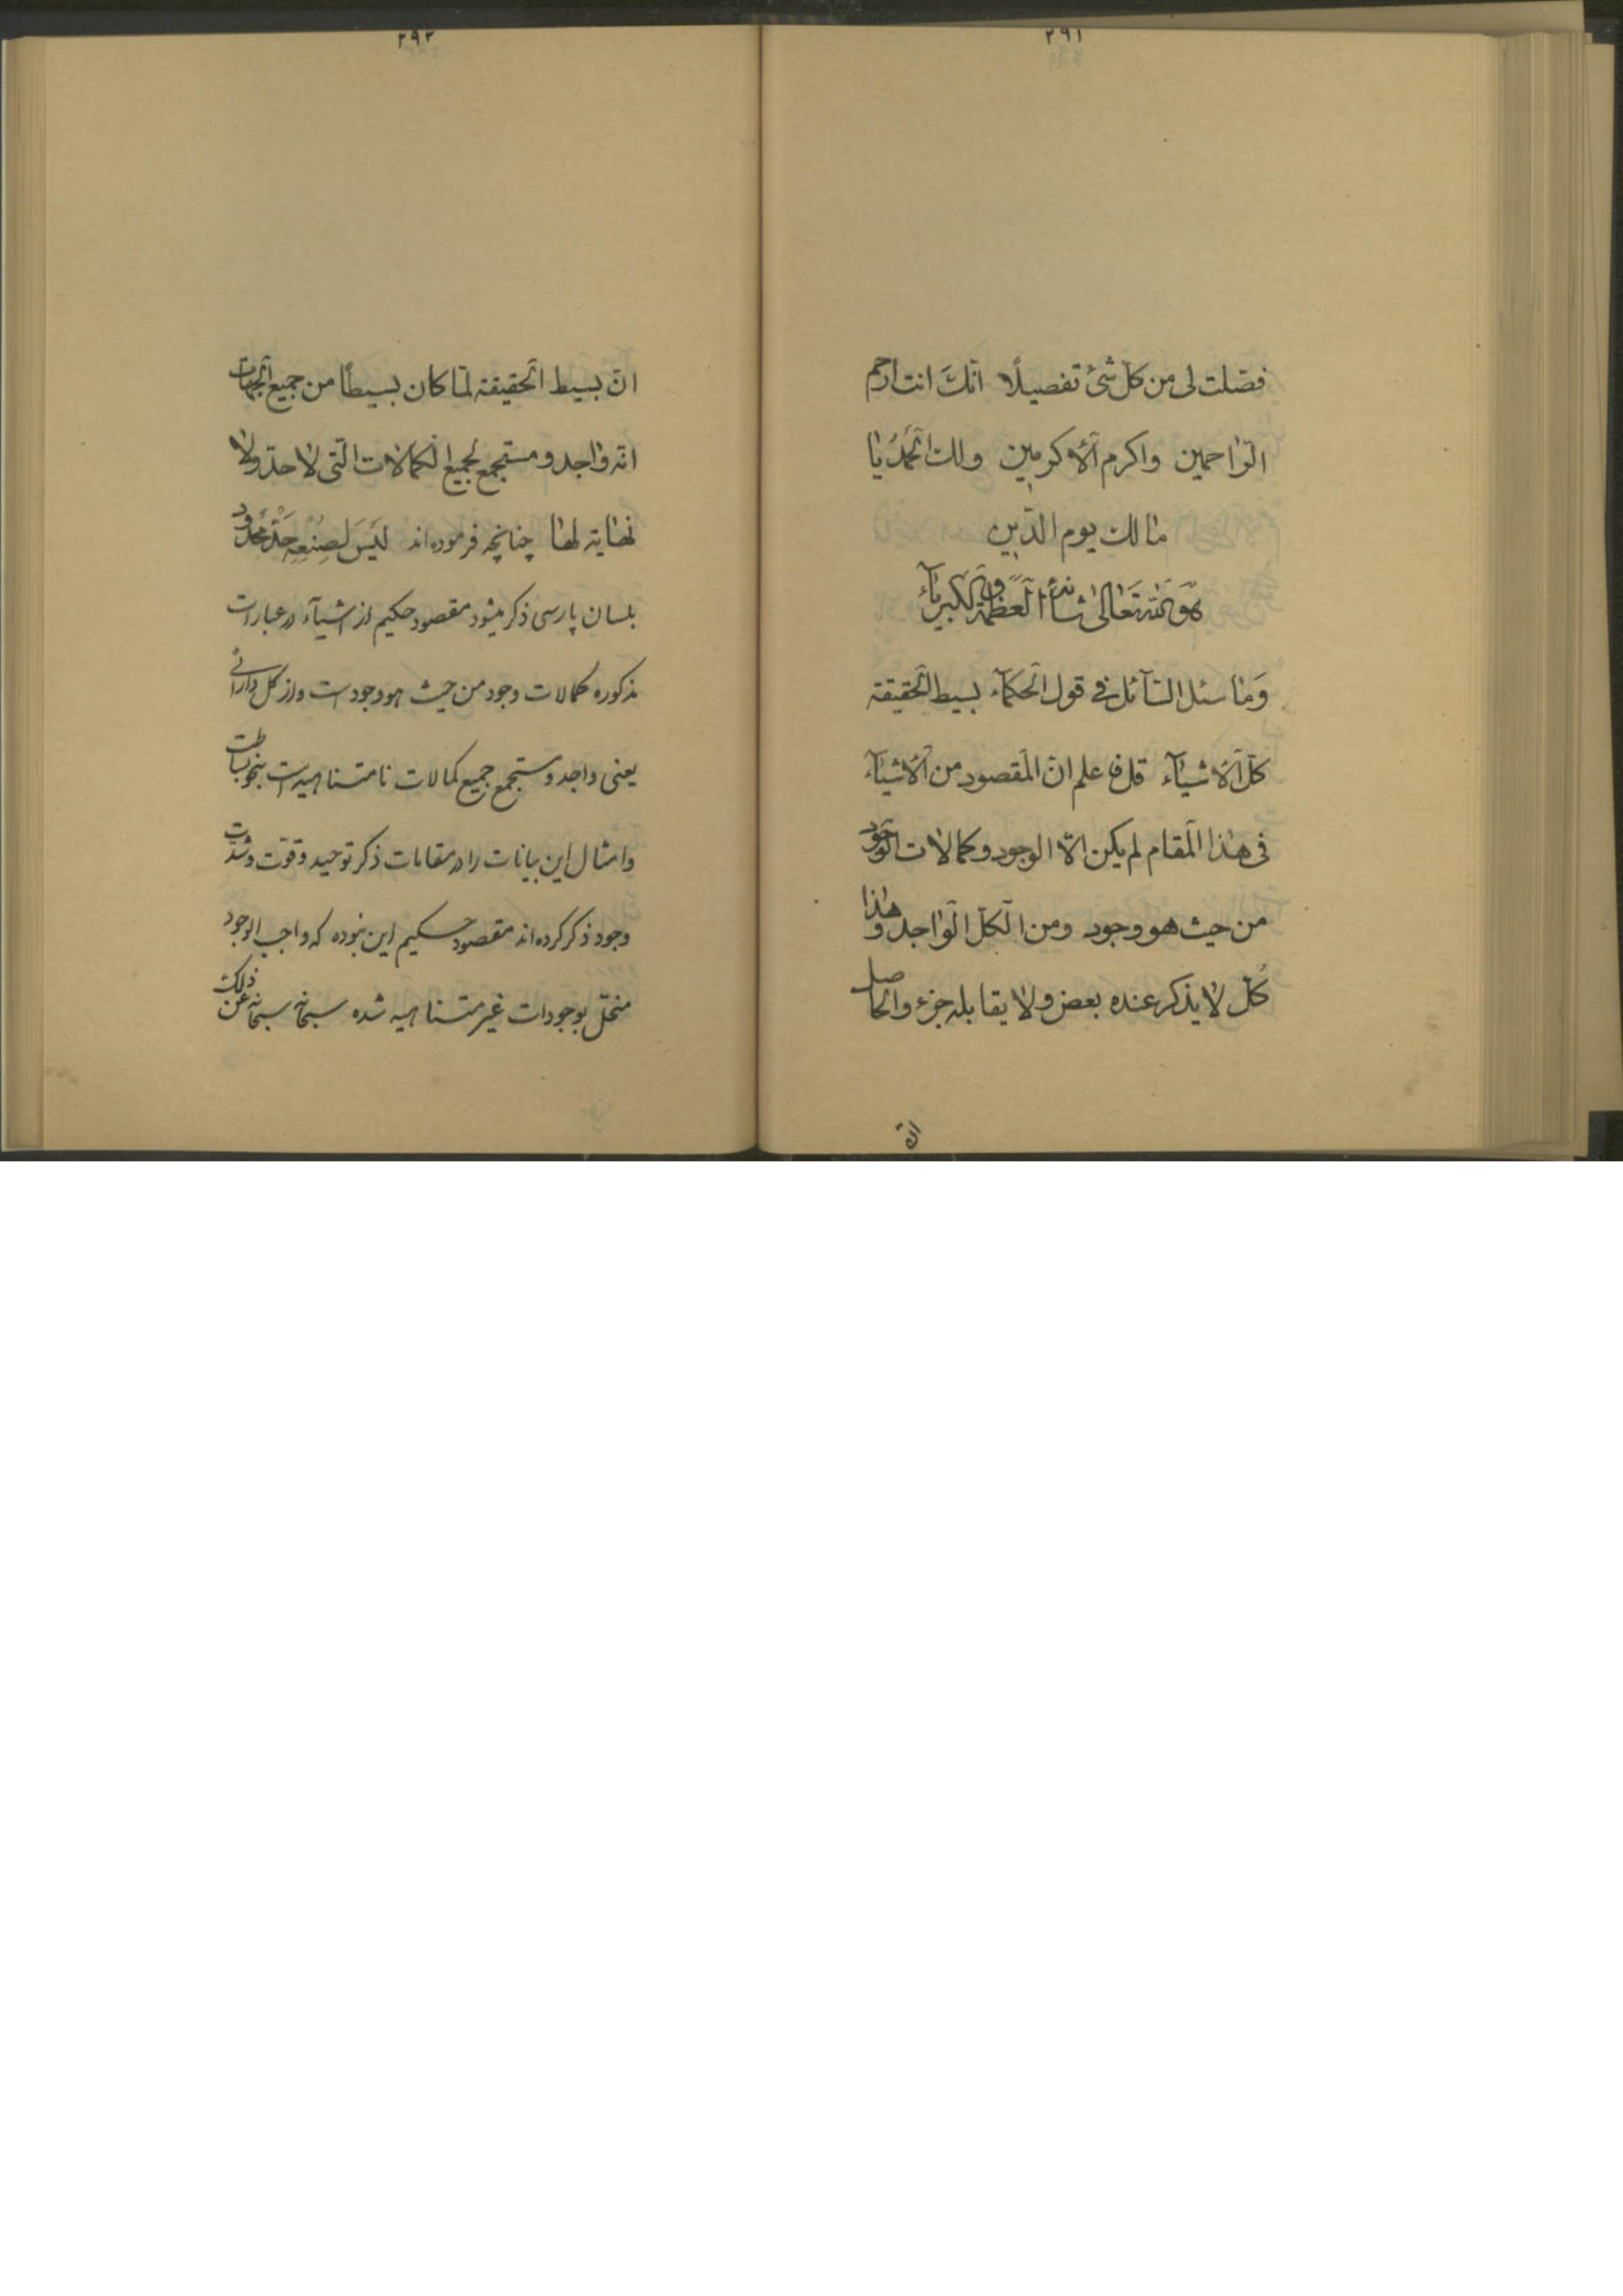 ۲۹۱
فصّلت لی من کلّ شیٔ تفصیلًا انّکَ انت ارحم
الرّاحمین واکرم الأکرمین ولک الحَمدُ یا
مالک یوم الدّین
هوَ اللّه تَعالی شأنه العَظمة والکبریآء
وَما سئل السّآئل فی قول الحکمآء بسیط الحقیقة
کلّ الاشیآء قل فاعلم انّ المقصود من الاشیآء
فی هذا المقام لم یکن الّا الوجود وکمالات الوجود
من حیث هو وجود ومن الکلّ الواجد وهذا
کُلّ لا یذکر عنده بعض ولا یقابله جزء والحاصل
انّ
۲۹۲
انّ بسیط الحقیقة لمّا کان بسیطًا من جمیع الجهات
انّه واجد ومستجمع لجمیع الکمالات الّتی لا حدّ ولا
نهایة لها چنانچه فرموده‌اند لَیسَ لصُنْعِهِ حَدّ مَحْدُود
بلسان پارسی ذکر میشود مقصود حکیم از اشیآء در عبارات
مذکوره کمالات وجود من حیث هو وجود است واز کل دارائی
یعنی واجد ومستجمع جمیع کمالات نامتناهیه است بنحو بساطت
وامثال این بیانات را در مقامات ذکر توحید وقوّت وشدّت
وجود ذکر کرده‌اند مقصود حکیم این نبوده که واجب الوجود
منحلّ بوجودات غیر متناهیه شده سبحانه سبحانه عن ذلک